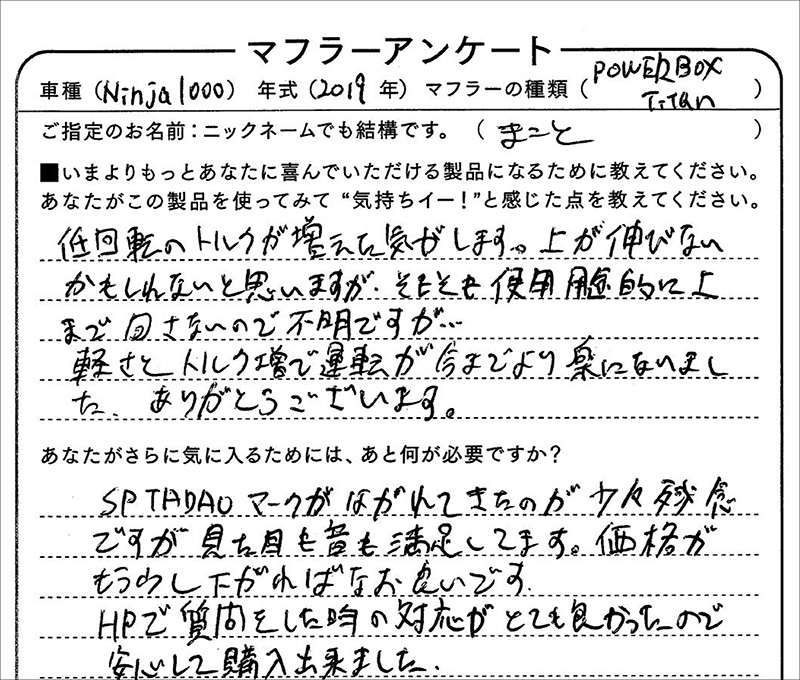 マフラーアンケート
車種（Ninja1000） 年式（2019 年） マフラーの種類（POWERBOX Titan）
ご指定のお名前：ニックネームでも結構です。（まこと）
■いまよりもっとあなたに喜んでいただける製品になるために教えてください。
あなたがこの製品を使ってみて“気持ちイー！”と感じた点を教えてください。
低回転のトルクが増えた気がします。上が伸びない
かもしれないと思いますが、そもそも使用用途的に上
まで回さないので不明ですが…
軽さとトルク増で運転が今までより楽になりまし
た、ありがとうございます。
あなたがさらに気に入るためには、あと何が必要ですか？
SP TADAO マークがはがれてきたのが少々残念
ですが見た目も音も満足してます。価格が
もう少し下がればなお良いです
HPで質問をした時の対応がとても良かったので
安心して購入出来ました.